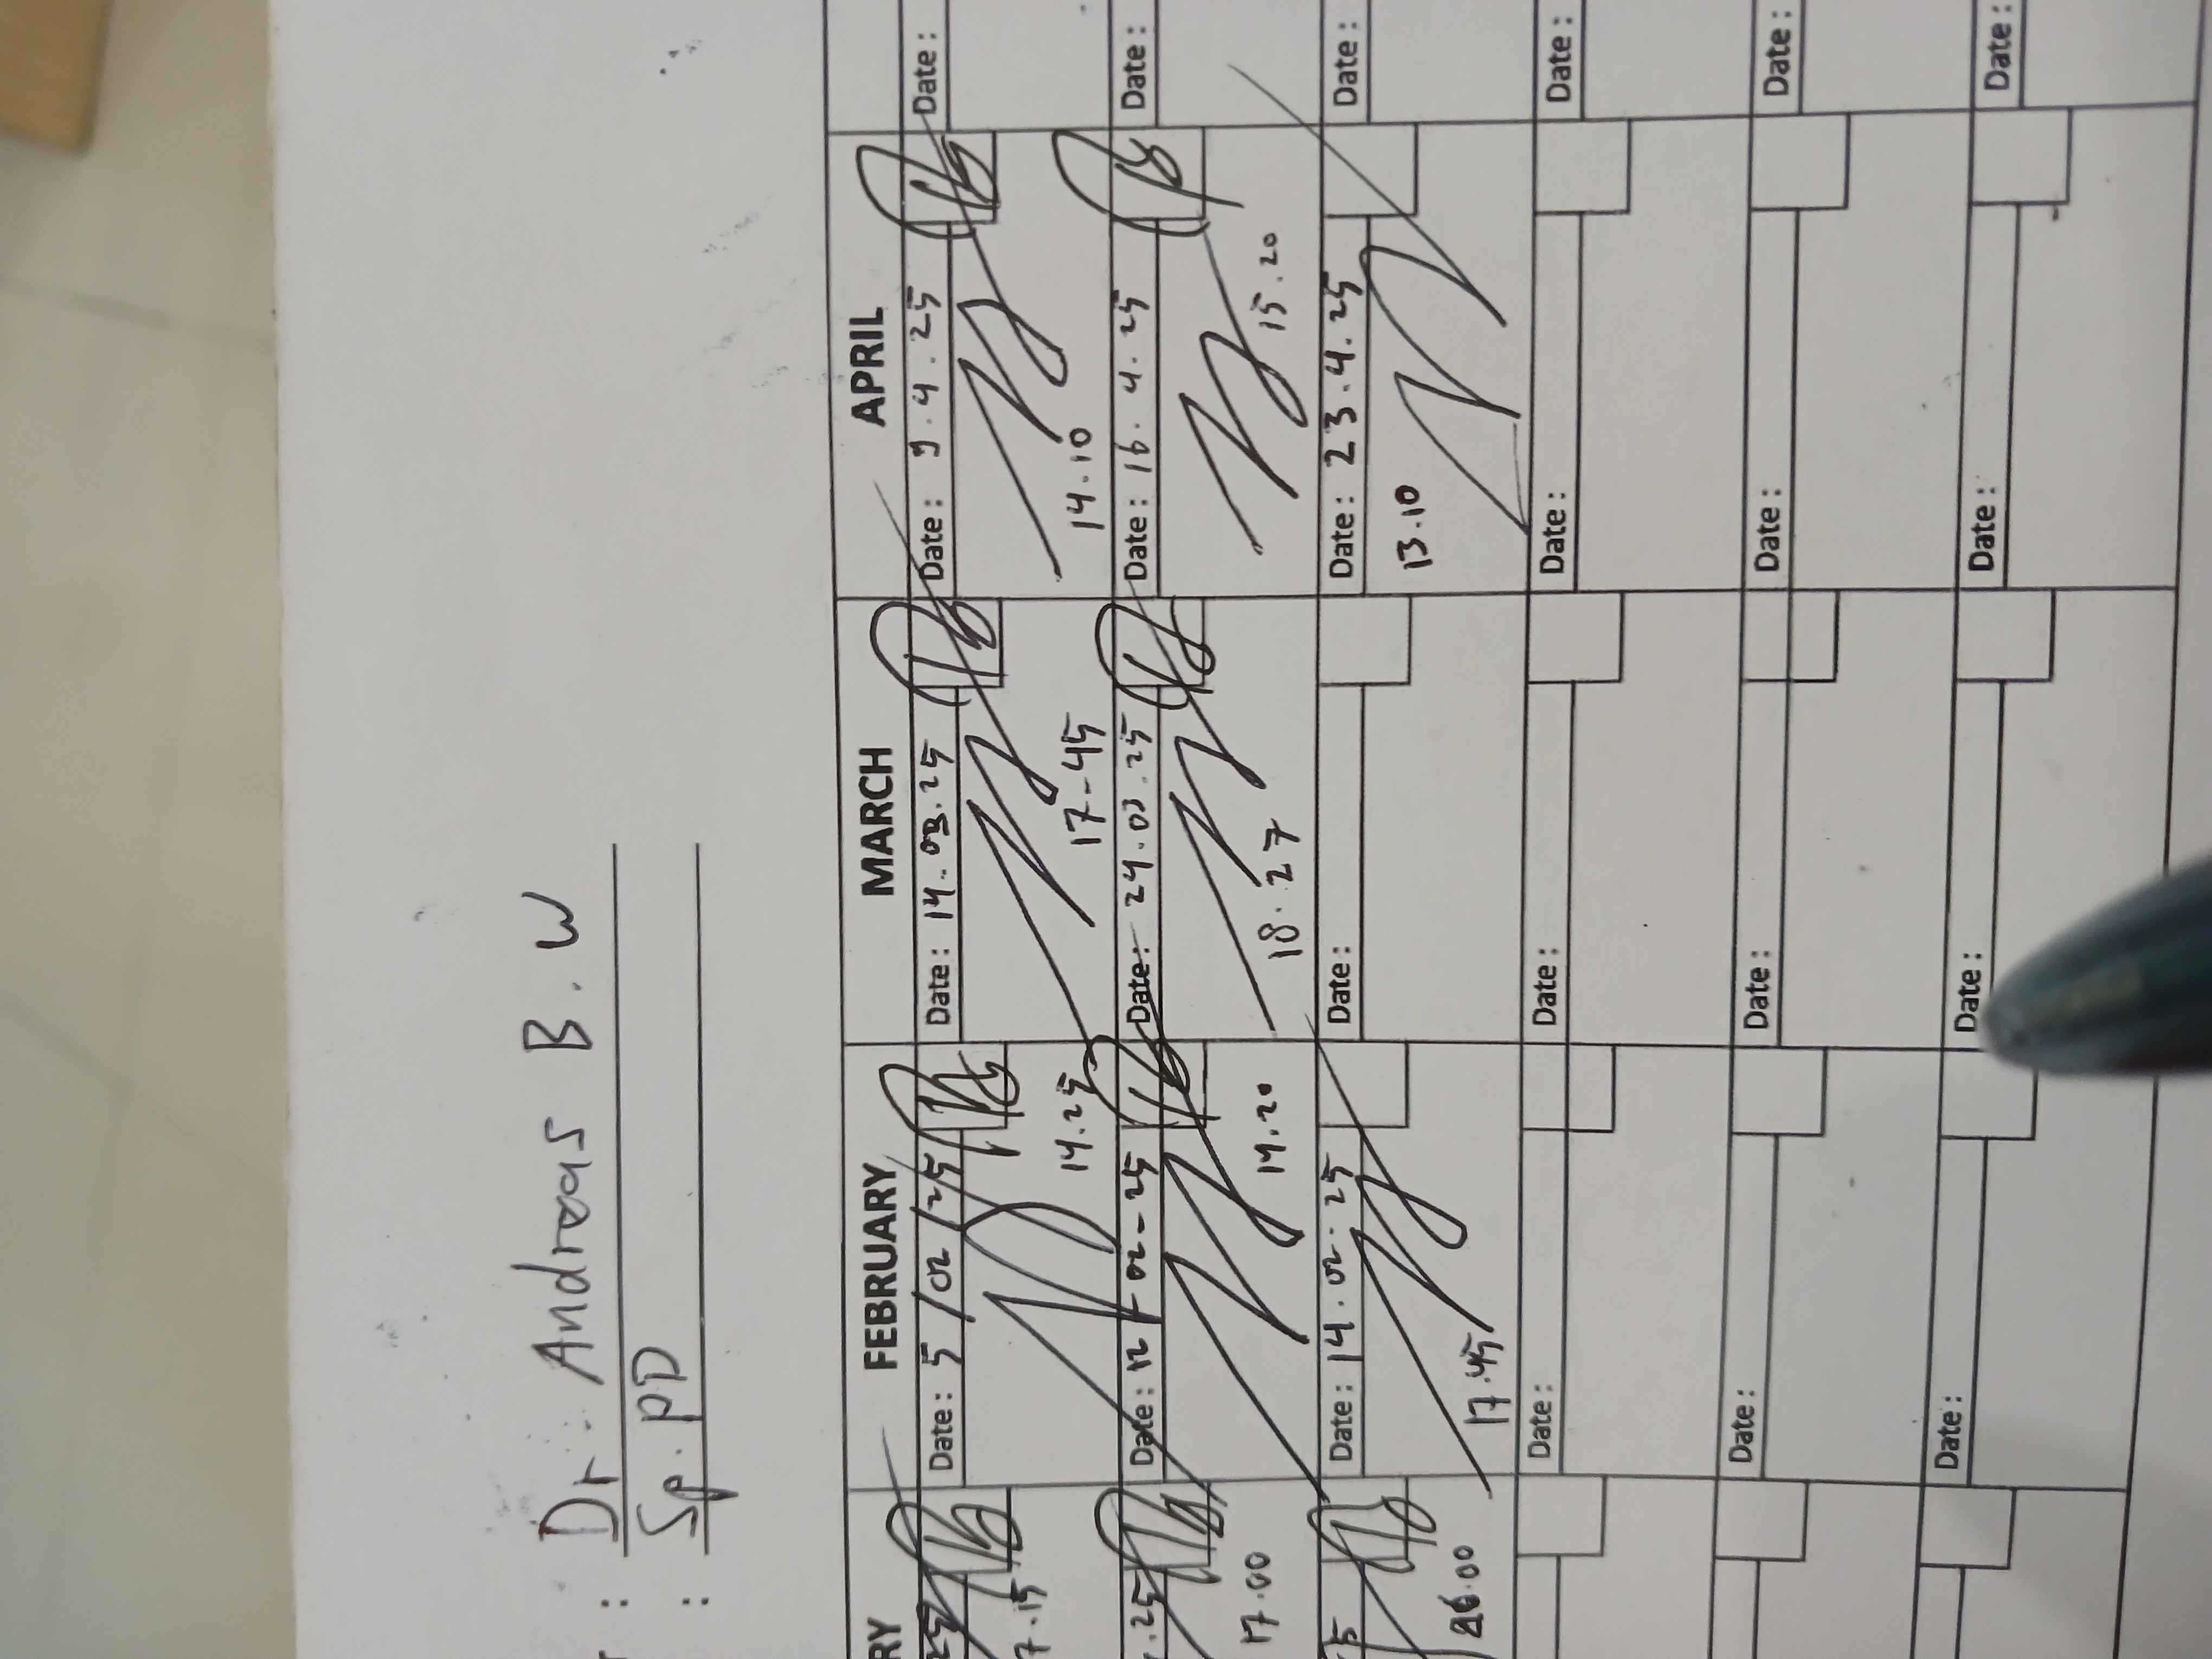 : Dr. Andreas B. W
: Sp. PD
RY FEBRUARY MARCH APRIL
25 Date : 5 / 02 / 25 Date : 14. 03. 25 Date : 9 . 4 . 25 Date :
7.15 14.25 17-45 14.10
.25 Date : 12 - 02 - 25 Date : 24. 03 . 25 Date : 16. 4. 25 Date :
17.00 14.20 18.27 15.20
5 Date : 14. 02. 25 Date : Date : 23. 4. 25 Date :
17.45 13.10
Date : Date : Date : Date :
Date : Date : Date : Date :
Date : Date : Date : Date :